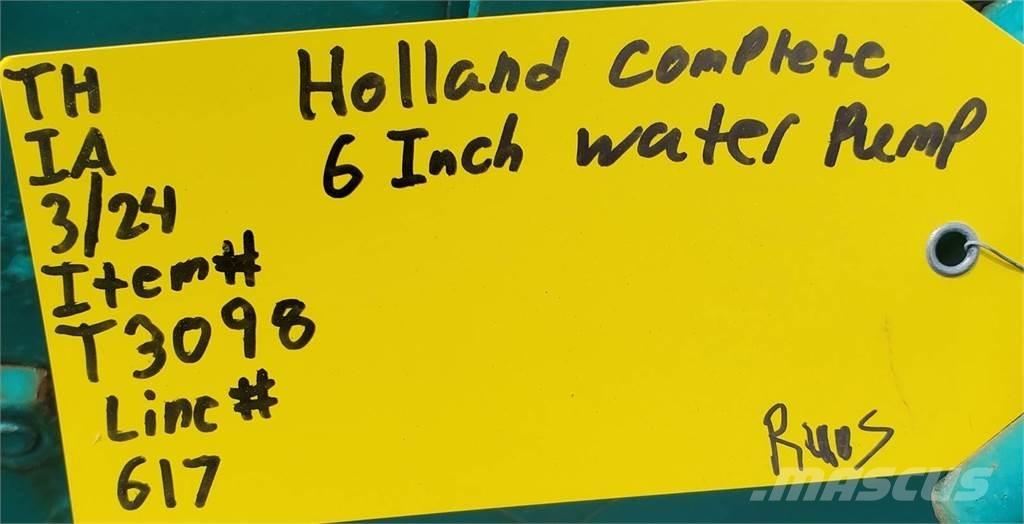 TH
IA
3/24
Item#
T3098
Line#
617
Holland Complete
6 Inch water Pump
Runs
MASCUS